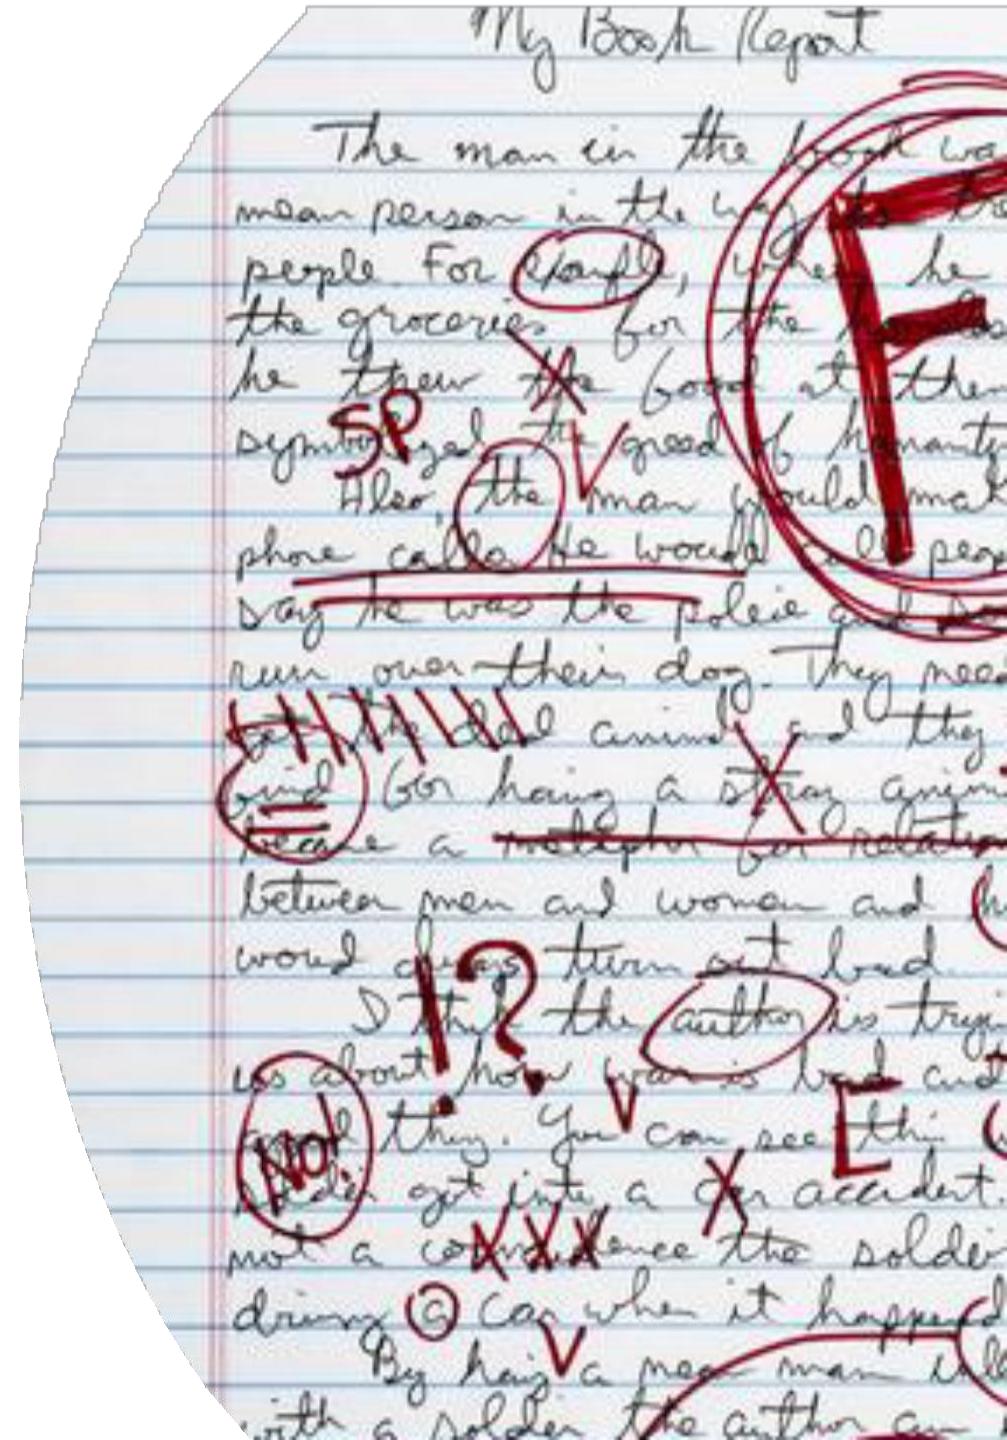 My Book Report
The man in the book wa
mean person in the way
people. For exmple, when he
the groceries for the
he threw the food at them
SP
symbolized the greed of humanity
Also, the man would mak
phone calls. He would call peop
say he was the polcie and
run over their dog. They nee
the dead animl and they
for having a stray anim
became a metaphr for relation
between men and women and h
woud always turn out bad.
!?
I think the author is tryi
us about how war is bad and
NO!
good thing. You can see thi
soldier got into a car accident.
not a the soldi
driving a car when it happend
By havig a mean man
with a solder the author can
F